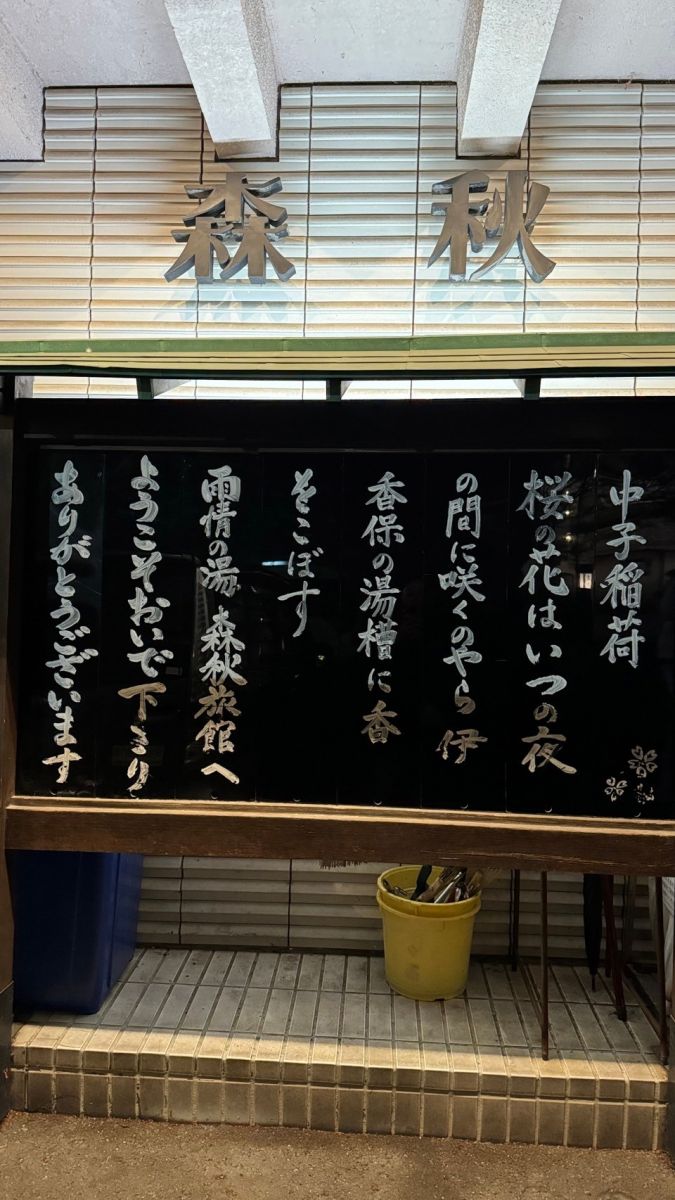 森秋
中子稲荷
桜の花はいつの夜
の間に咲くのやら 伊
香保の湯槽に香
をこぼす
雨情の湯 森秋旅館へ
ようこそおいで下さり
ありがとうございます